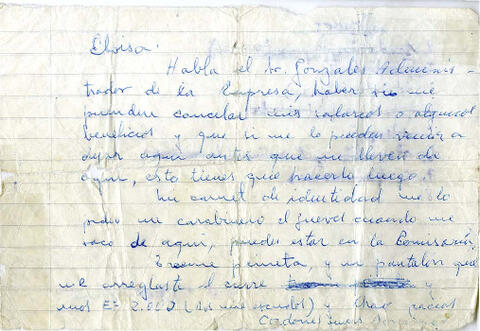 Eloisa:
Habla el Sr. Gonzales Adminis-
trador de la Empresa, haber si me
pueden cancelar mis salarios o algunos
beneficios y que si me lo pueden venir a
dejar aquí antes que me lleven de
aquí, esto tienes que hacerlo luego.
Mi carnet de identidad me lo
pidio un carabinero el jueves cuando me
saco de aquí, puede estar en la Comisaría,
Traeme y un pantalon que
me arreglaste el cierre y
unos Eº 2.000 (dos mil escudos) y Chao